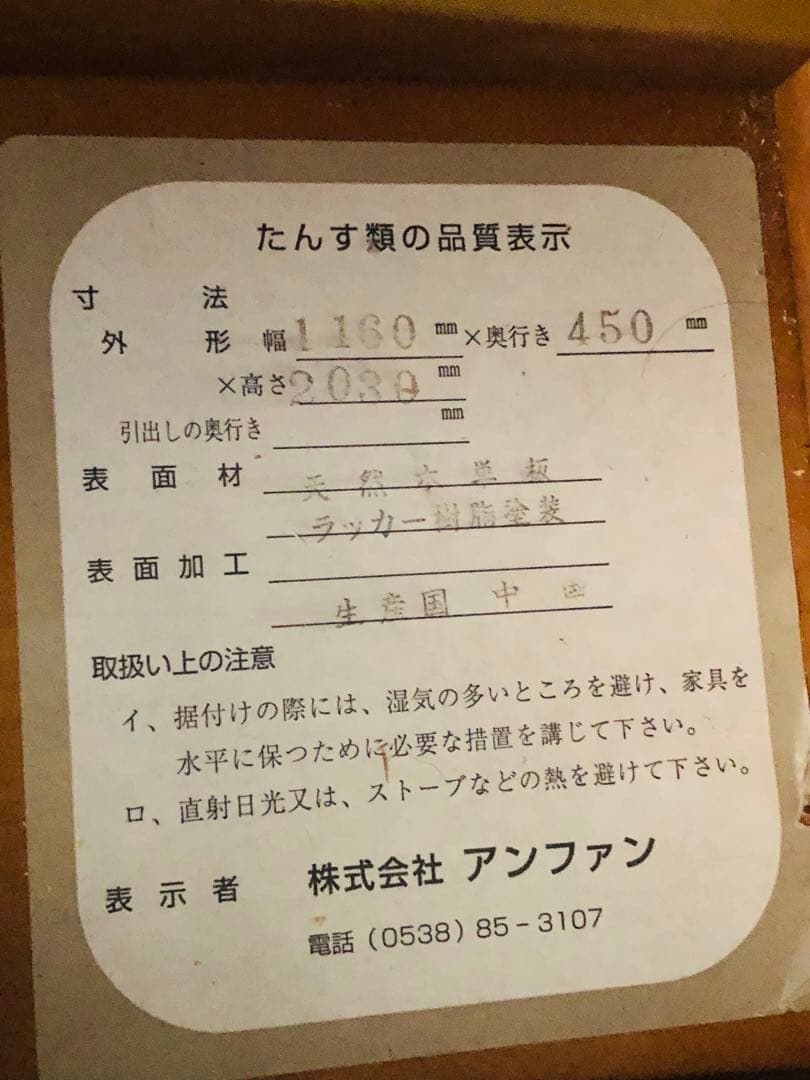 たんす類の品質表示
寸法
外形 幅1160mm×奥行き450mm
×高さ2030mm
引出しの奥行き mm
表面材 天然木単板
ラッカー樹脂塗装
表面加工
生産国 中国
取扱い上の注意
イ、据付けの際には、湿気の多いところを避け、家具を
水平に保つために必要な措置を講じて下さい。
ロ、直射日光又は、ストーブなどの熱を避けて下さい。
表示者 株式会社 アンファン
電話(0538)85-3107